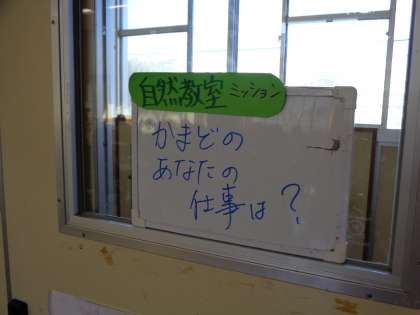 自然教室 ミッション
かまどの
あなたの
仕事は?